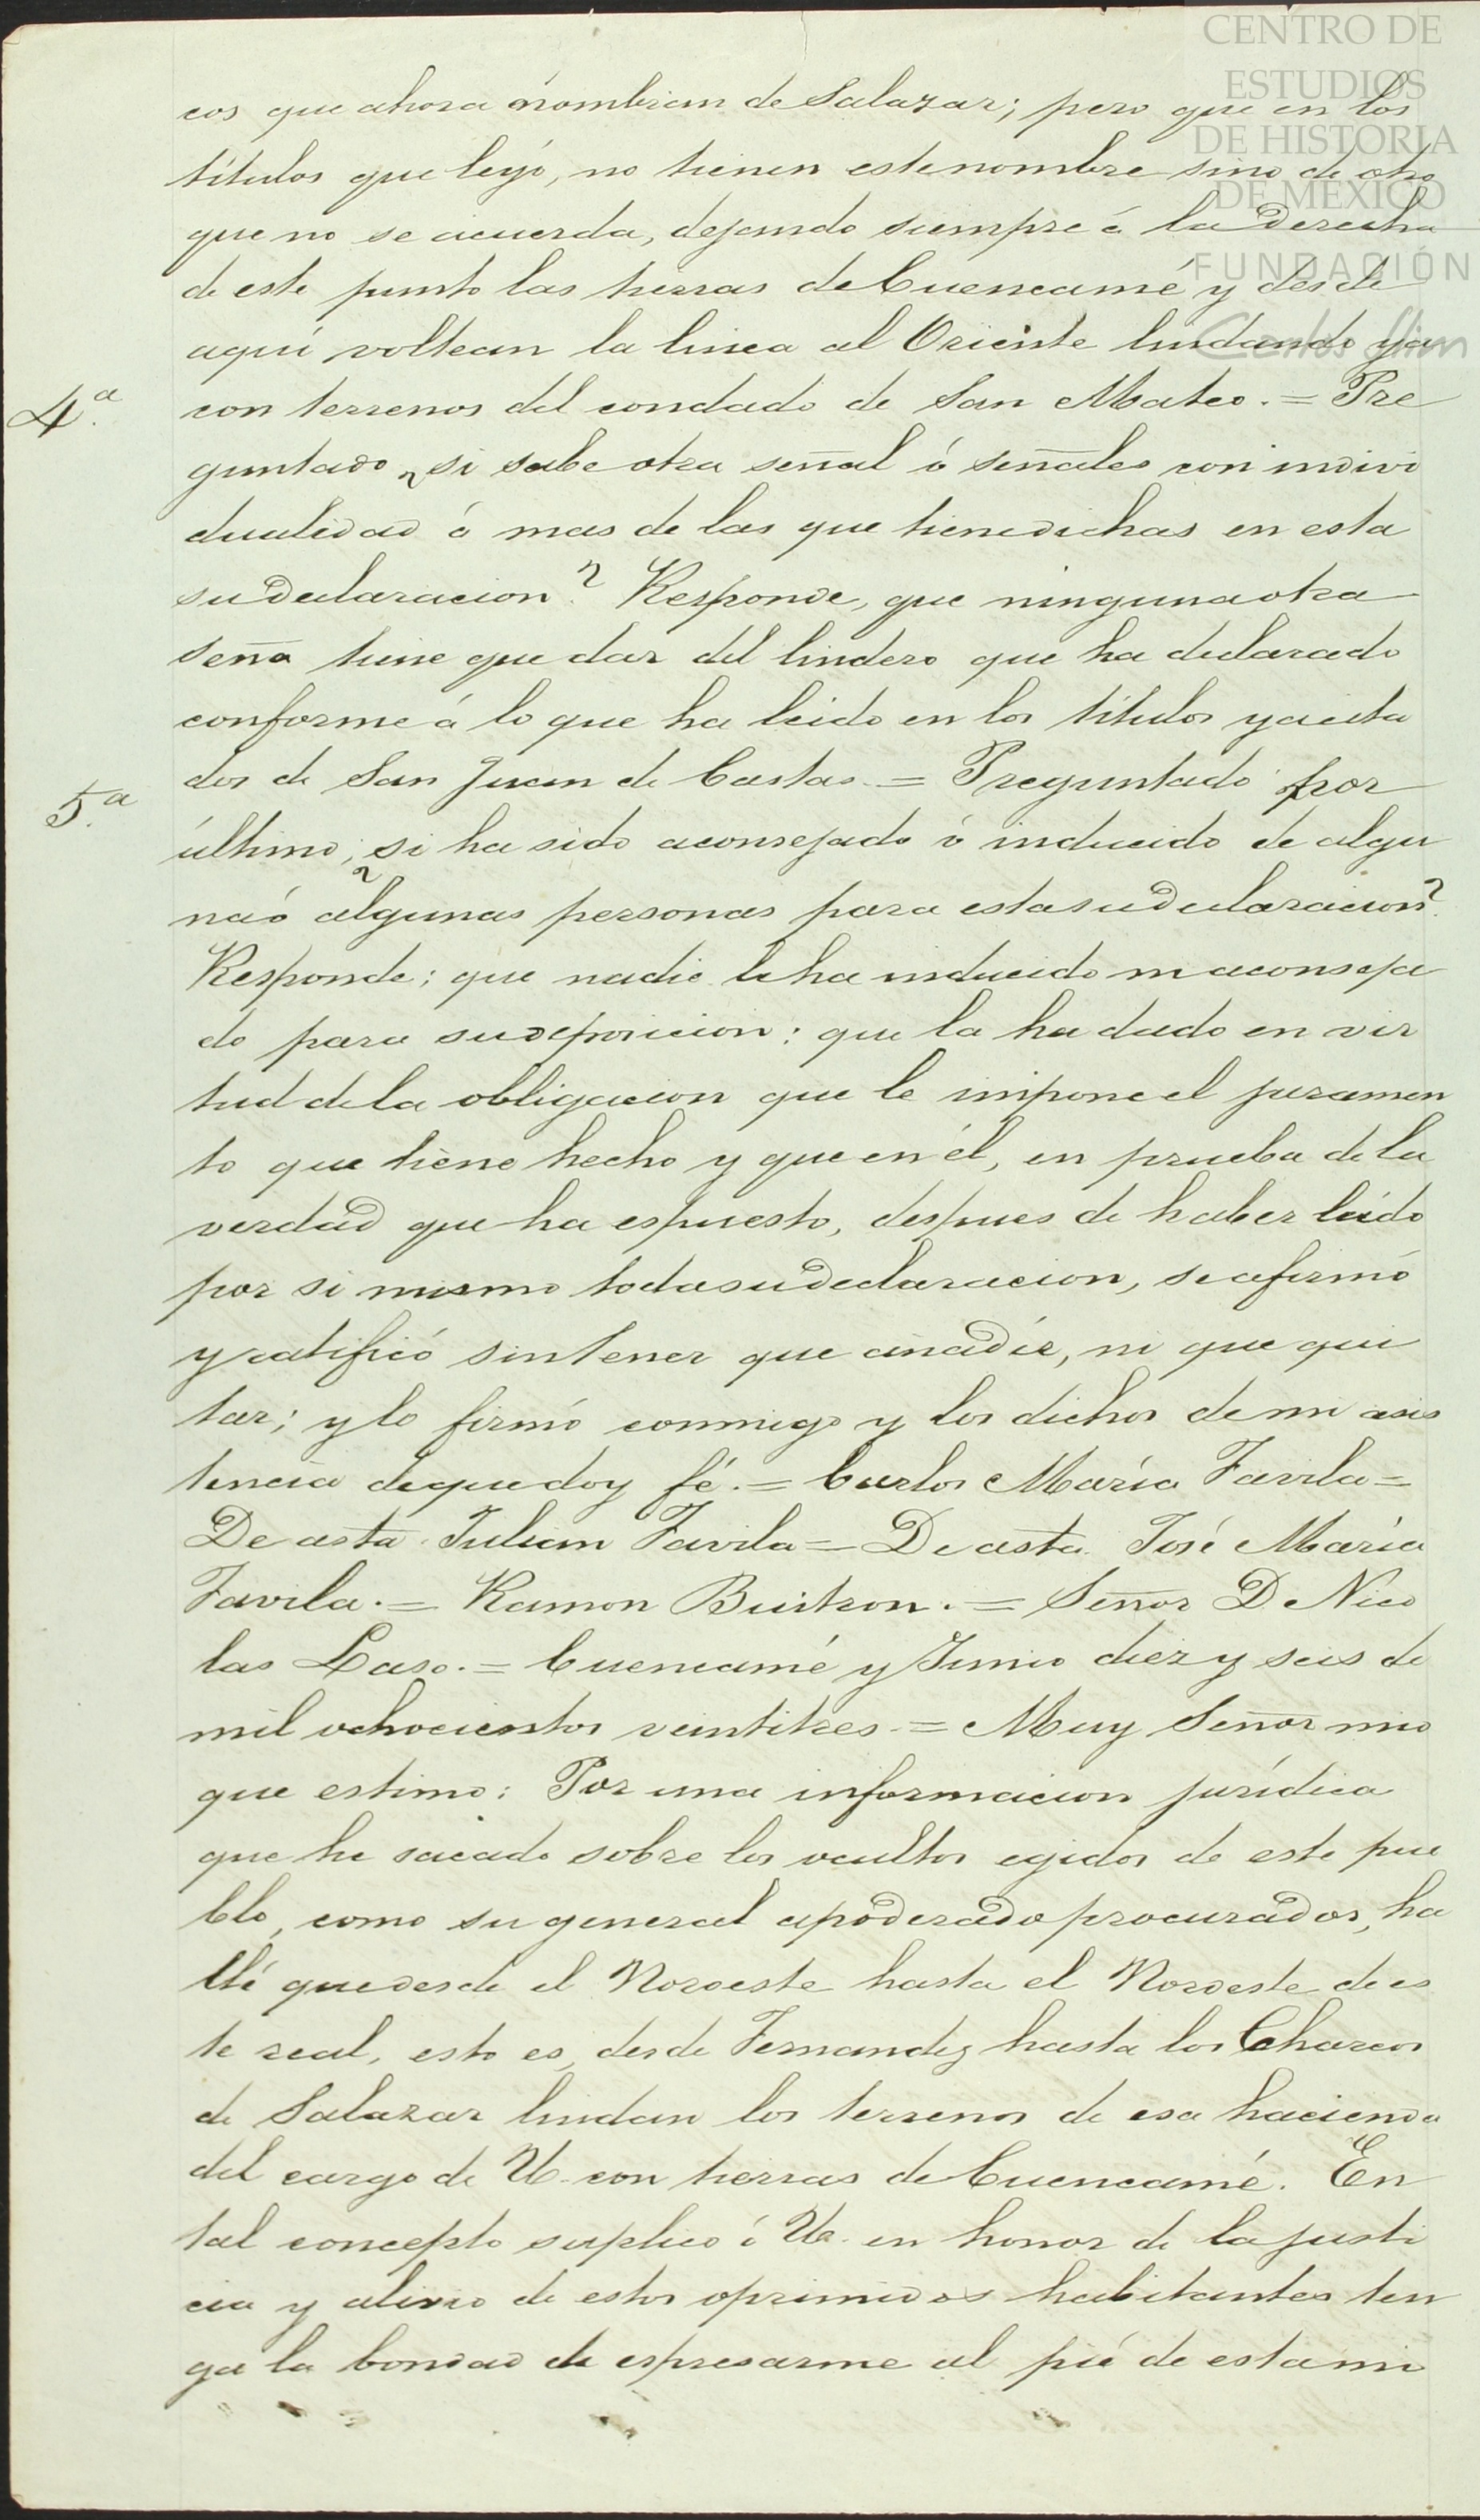 CENTRO DE
ESTUDIOS
DE HISTORIA
DE MÉXICO
FUNDACIÓN
Carlos Slim
cos que ahora nombran de Salazar; pero que en los
títulos que leyó, no tienen este nombre sino de otro
que no se acuerda, dejando siempre á la derecha
de este punto las tierras de Cuencamé y desde
aquí voltean la linea al Oriente lindando ya
4.ª con terrenos del condado de San Mateo. = Pre
guntado ¿si sabe otra señal ó señales con indivi
dualidad á mas de las que tiene dichas en esta
su declaracion? Responde, que ninguna otra
seña tiene que dar del lindero que ha declarado
conforme á lo que ha leido en los títulos ya cita
dos de San Juan de Castas. = Preguntado por
5.ª último, ¿si ha sido aconsejado ó inducido de algu
na ó algunas personas para esta su declaracion?
Responde; que nadie le ha inducido ni aconseja
do para su deposicion: que la ha dado en vir
tud de la obligacion que le impone el juramen
to que tiene hecho y que en él, en prueba de la
verdad que ha espuesto, despues de haber leido
por si mismo toda su declaracion, se afirmó
y ratificó sin tener que añadir, ni que qui
tar; y lo firmó conmigo y los dichos de mi asis
tencia de que doy fé. = Carlos María Favila =
De asta. Julian Favila = De asta. José María
Favila. = Ramon Buitron. = Señor D. Nico
las Laso. = Cuencamé y Junio diez y seis de
mil ochocientos veintitres. = Muy Señor mio
que estimo: Por una informacion jurídica
que he sacado sobre los ocultos egidos de este pue
blo, como su general apoderado procurador, ha
llé que desde el Noroeste hasta el Noroeste de es
te real, esto es, desde Fernandez hasta los Charcos
de Salazar lindan los terrenos de esa hacienda
del cargo de U. con tierras de Cuencamé. En
tal concepto suplico á U. en honor de la justi
cia y alivio de estos oprimidos habitantes ten
ga la bondad de espresarme al pié de esta mi